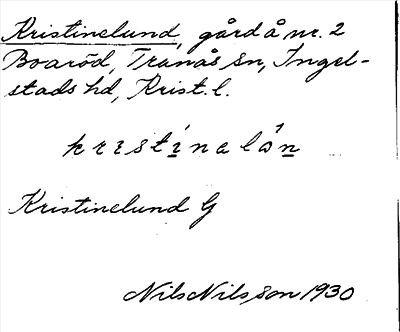 Kristinelund, gård å nr. 2
Boaröd, Tranås sn, Ingel-
stads hd, Krist. l.
kristinelón
Kristinelund G
Nils Nilsson 1930